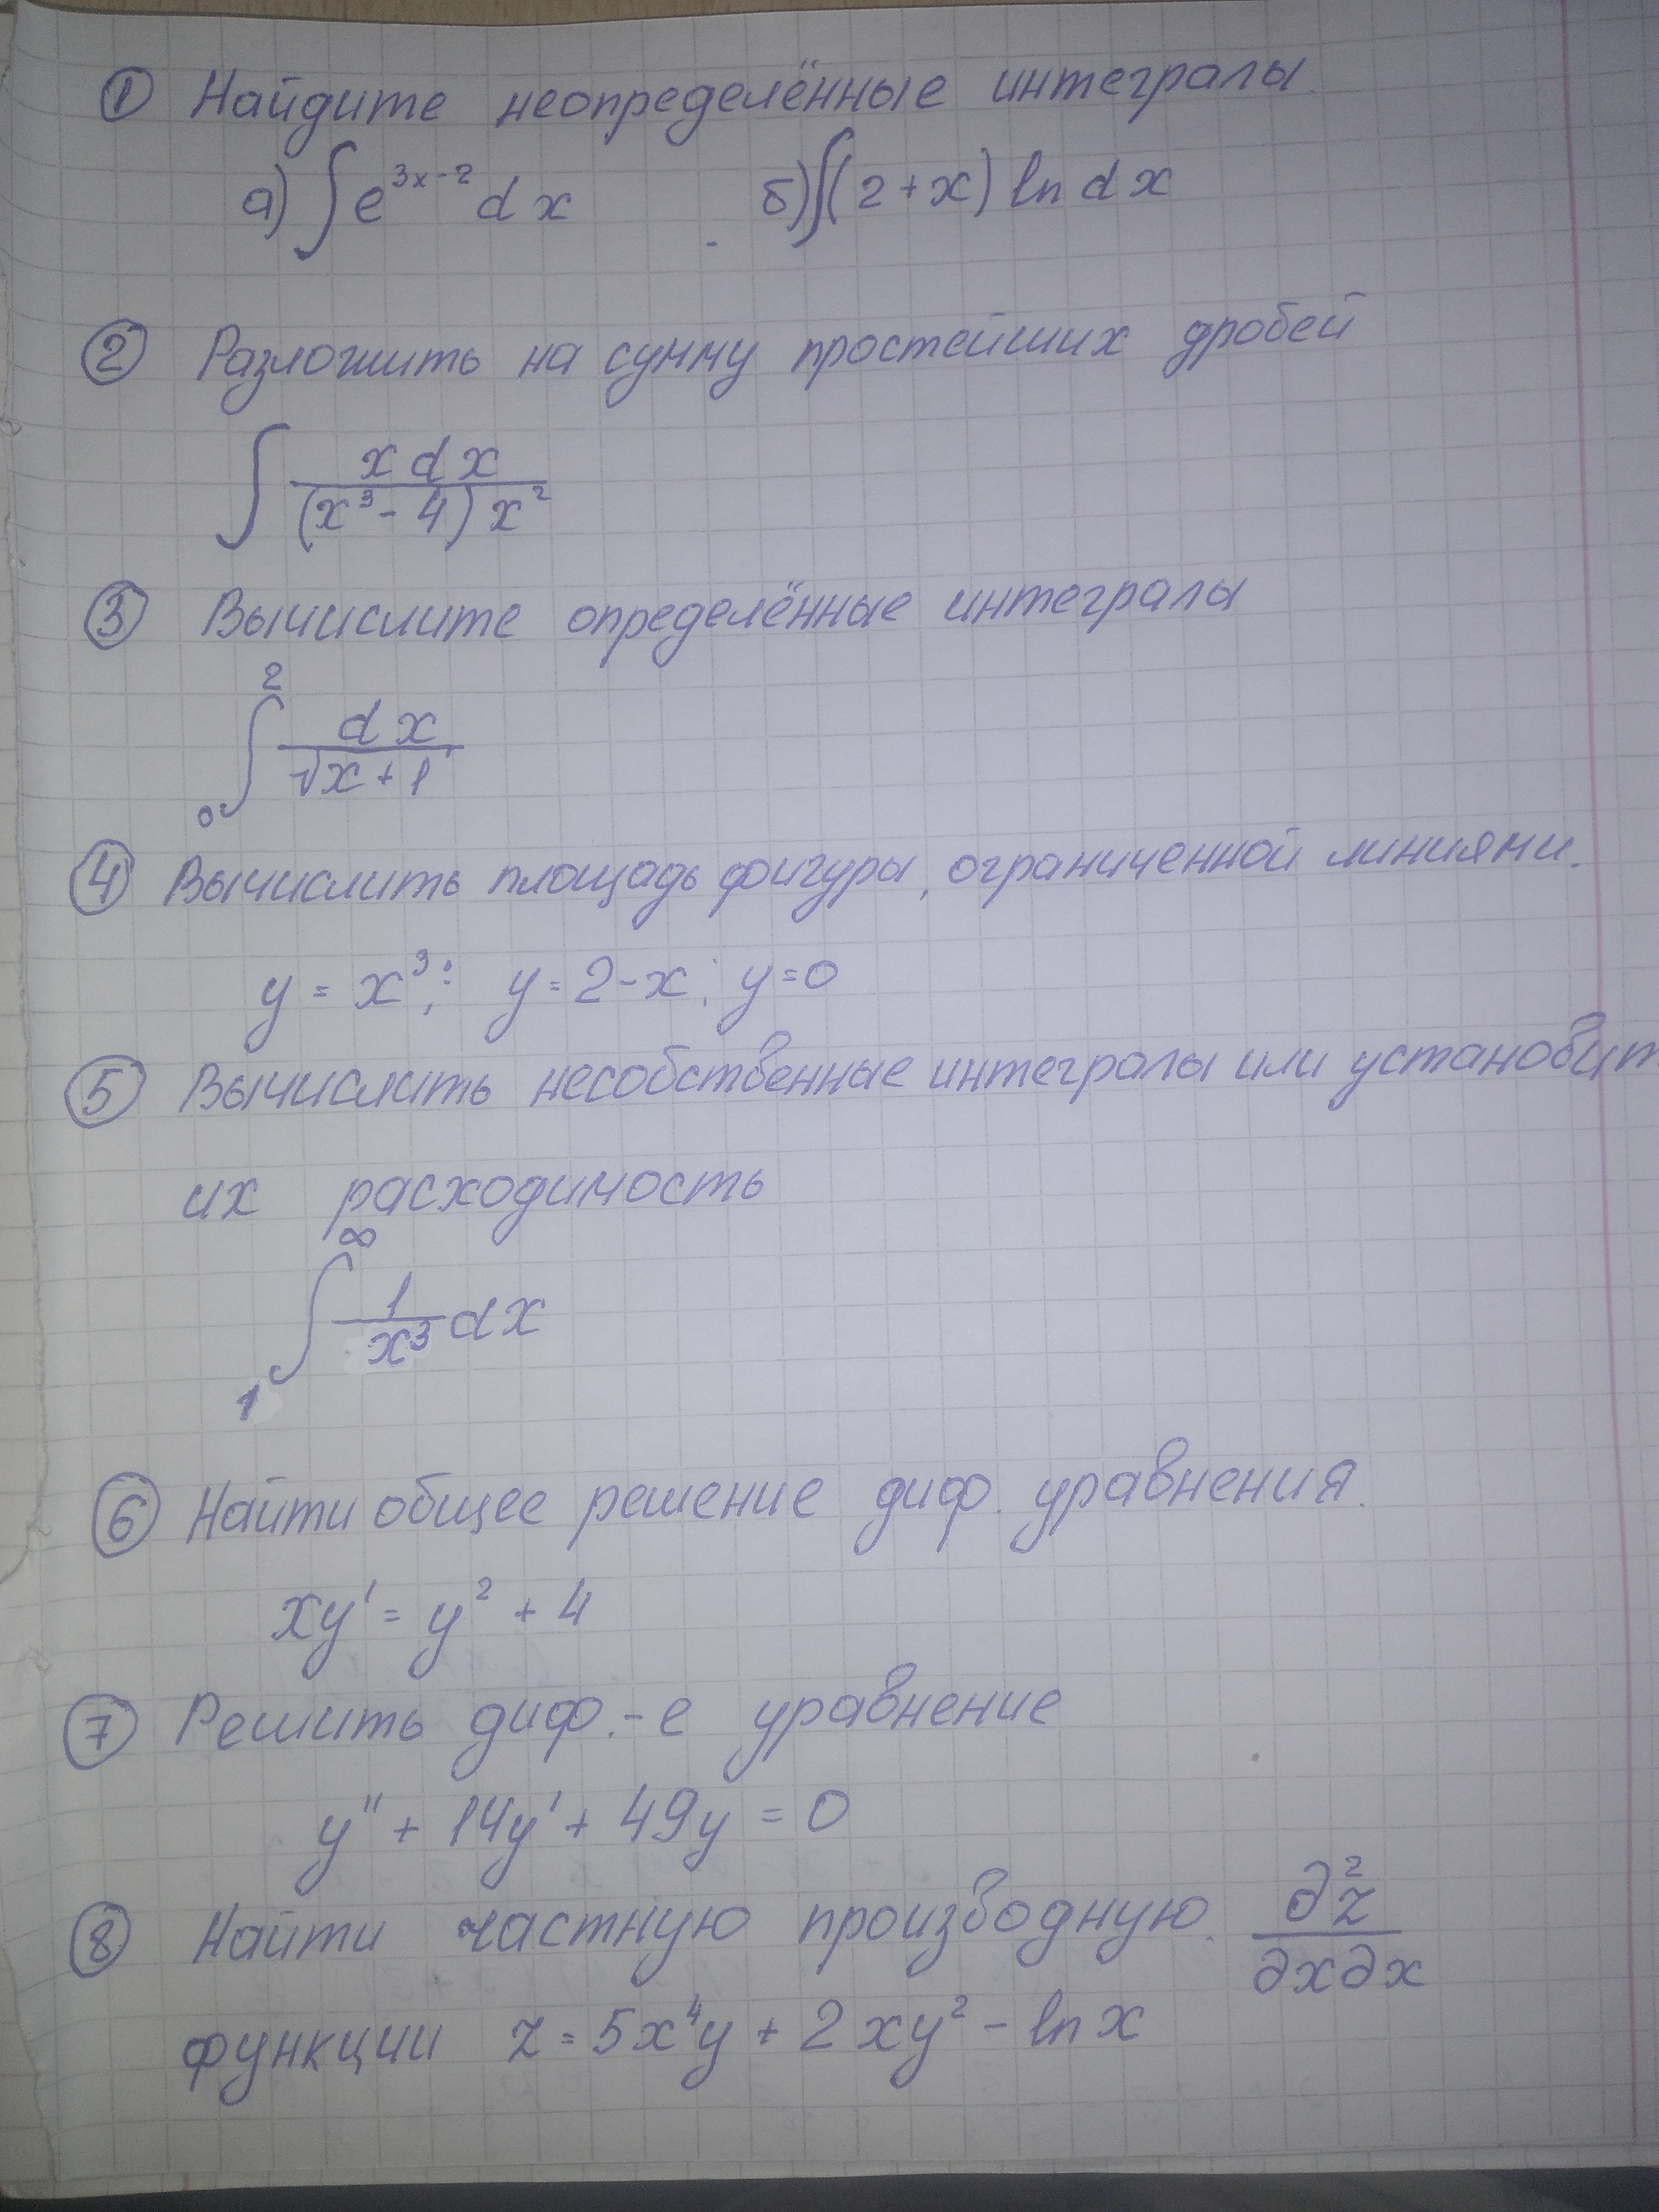 ① Найдите неопределённые интегралы.
а) ∫ e^{3x-2} dx б) ∫(2+x) ln dx
② Разложить на сумму простейших дробей
∫ x dx / (x³ - 4) x²
③ Вычислите определённые интегралы
∫₀² dx / √x+1
④ Вычислить площадь фигуры, ограниченной линиями.
y = x³; y = 2-x; y=0
⑤ Вычислить несобственные интегралы или установит
их расходимость
∫₁^∞ 1/x³ dx
⑥ Найти общее решение диф. уравнения.
xy' = y² + 4
⑦ Решить диф.-е уравнение
y'' + 14y' + 49y = 0
⑧ Найти частную производную. ∂²z / ∂x∂x
функции z = 5x⁴y + 2xy² - ln x